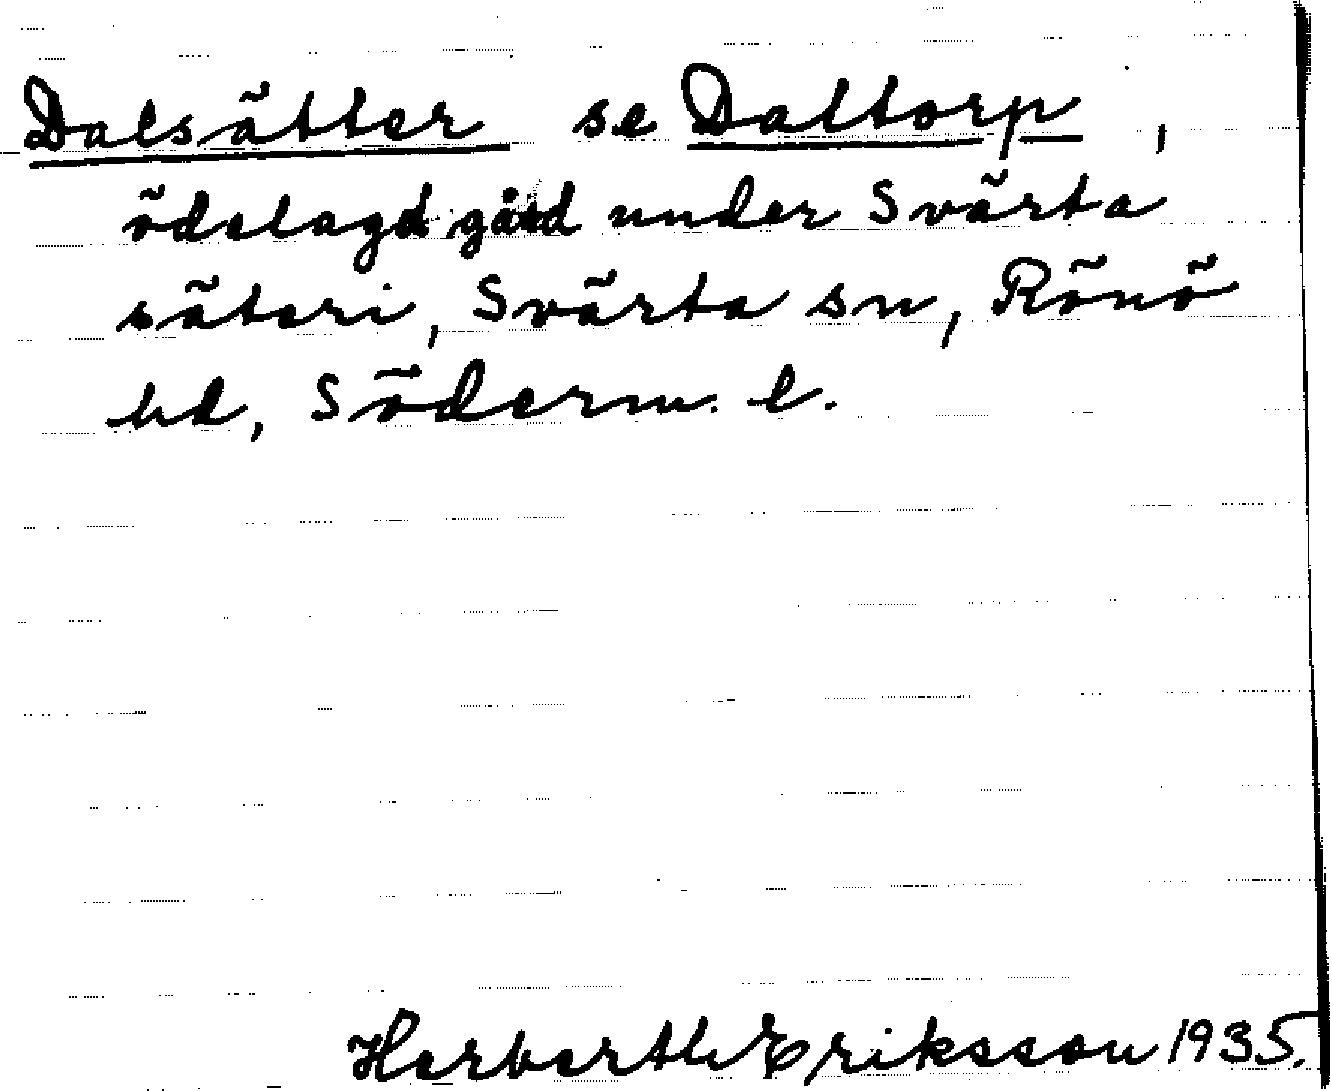 Dalsätter se Daltorp,
ödelagd gård under Svärta
säteri, Svärta sn, Rönö
hd, Söderm. l.
Herbarth Eriksson 1935.